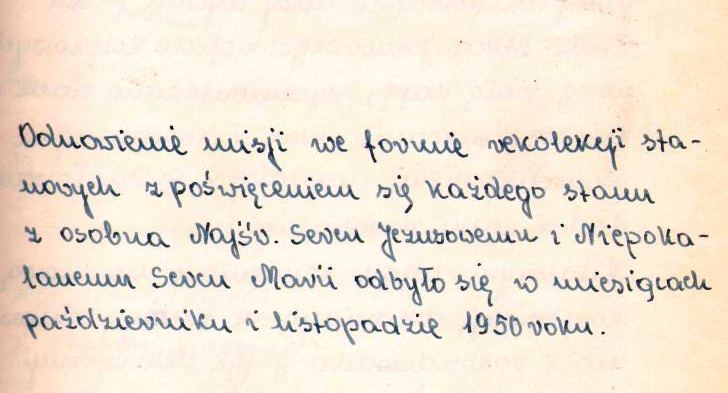 Odnowienie misji we formie rekolekcji sta-
nowych z poświęceniem się każdego stanu
z osobna Najśw. Sercu Jezusowemu i Niepoka-
lanemu Sercu Marii odbyło się w miesiącach
październiku i listopadzie 1950 roku.